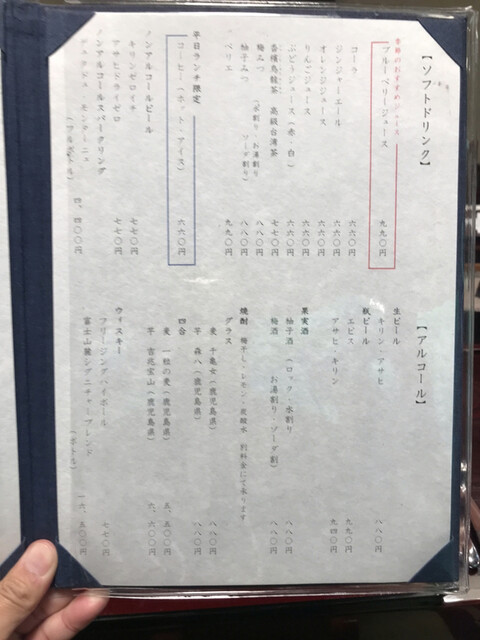 【ソフトドリンク】
季節のおすすめジュース
ブルーベリージュース 九九〇円
コーラ 六六〇円
ジンジャーエール 六六〇円
オレンジジュース 六六〇円
りんごジュース 六六〇円
ぶどうジュース(赤 白) 六六〇円
香檳烏龍茶 高級台湾茶 七七〇円
梅みつ (水割り・お湯割り 八八〇円
柚子みつ ソーダ割り) 八八〇円
ペリエ 九九〇円
平日ランチ限定
コーヒー(ホット・アイス) 六六〇円
ノンアルコールビール
キリンゼロイチ 七七〇円
アサヒドライゼロ 七七〇円
ノンアルコールスパークリング
デュク・ドゥ・モンターニュ
(フルボトル) 四、四〇〇円
【アルコール】
生ビール
キリン・アサヒ 八八〇円
瓶ビール
エビス 九九〇円
アサヒ・キリン 九四〇円
果実酒
柚子酒 (ロック・水割り 八八〇円
梅酒 お湯割り・ソーダ割) 八八〇円
焼酎 梅干し・レモン・炭酸水 別料金にて承ります
グラス
麦 十亀女(鹿児島県) 八八〇円
芋 森八(鹿児島県) 八八〇円
四合
麦 一粒の麦(鹿児島県) 五、五〇〇円
芋 吉兆宝山(鹿児島県) 六、六〇〇円
ウィスキー
フリージングハイボール 七七〇円
富士山麓シグニチャーブレンド
(ボトル) 一六、五〇〇円